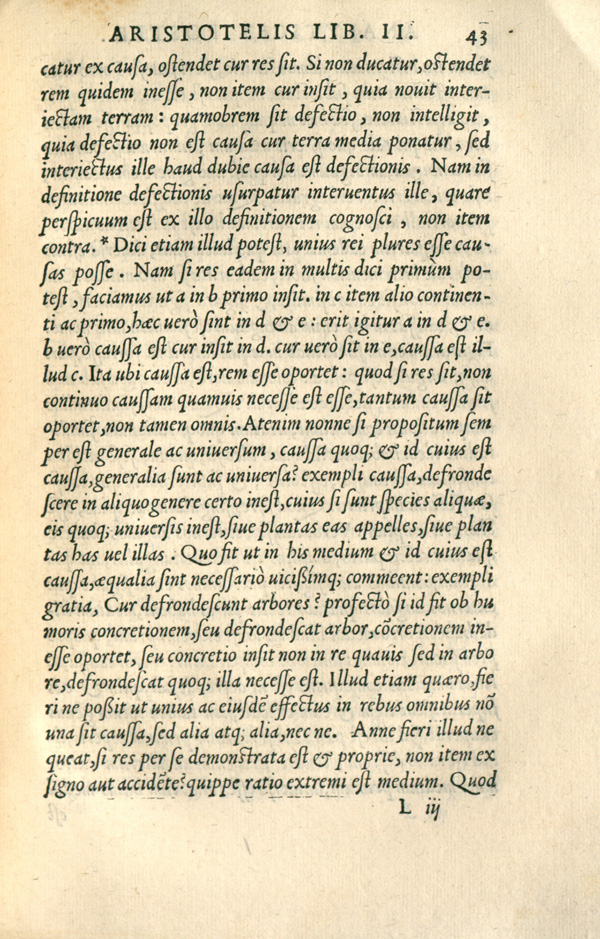 ARISTOTELIS LIB. II. 43
catur ex causa, ostendet cur res sit. Si non ducatur, ostendet
rem quidem inesse, non item cur insit, quia nouit inter-
iectam terram: quamobrem sit defectio, non intelligit,
quia defectio non est causa cur terra media ponatur, sed
interiectus ille haud dubie causa est defectionis. Nam in
definitione defectionis usurpatur interuentus ille, quare
perspicuum est ex illo definitionem cognosci, non item
contra.* Dici etiam illud potest, unius rei plures esse cau-
sas posse. Nam si res eadem in multis dici primùm po-
test, faciamus ut a in b primo insit. in c item alio continen-
ti ac primo, hæc uerò sint in d & e: erit igitur a in d & e.
b uerò caussa est cur insit in d. cur uerò sit in e, caussa est il-
lud c. Ita ubi caussa est, rem esse oportet: quod si res sit, non
continuo caussam quamuis necesse est esse, tantum caussa sit
oportet, non tamen omnis. Atenim nonne si propositum sem
per est generale ac uniuersum, caussa quoq; & id cuius est
caussa, generalia sunt ac uniuersa? exempli caussa, defronde
scere in aliquo genere certo inest, cuius si sunt species aliquæ,
eis quoq; uniuersis inest, siue plantas eas appelles, siue plan
tas has uel illas. Quo fit ut in his medium & id cuius est
caussa, æqualia sint necessariò uicißimq; commeent: exempli
gratia, Cur defrondescunt arbores? profectò si id fit ob hu
moris concretionem, seu defrondescat arbor, cõcretionem in-
esse oportet, seu concretio insit non in re quauis sed in arbo
re, defrondescat quoq; illa necesse est. Illud etiam quæro, fie
ri ne poßit ut unius ac eiusdẽ effectus in rebus omnibus nõ
una sit caussa, sed alia atq; alia, nec ne. Anne fieri illud ne
queat, si res per se demonstrata est & proprie, non item ex
signo aut accidẽte? quippe ratio extremi est medium. Quod
L iij